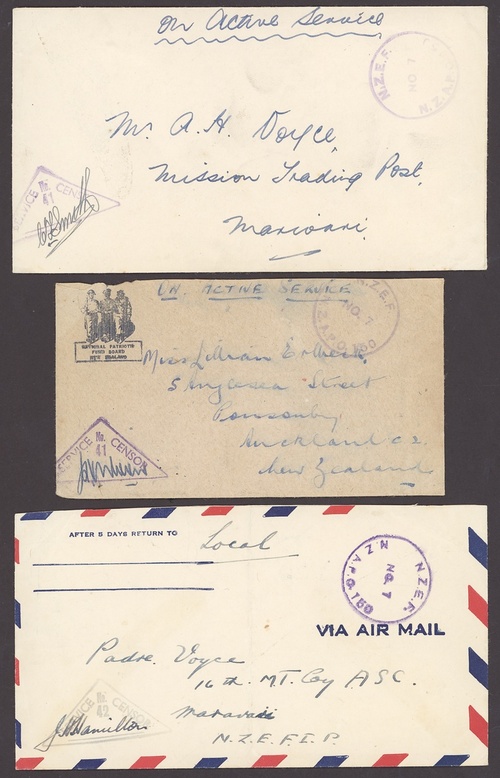 On Active Service
N.Z.E.F.
NO 7
N.Z.A.P.
Mr A. H. Voyce,
Mission Trading Post,
SERVICE No. 41 CENSOR
On Active Service
N.Z.E.F.
NO. 7
A.P.O. 150
NATIONAL PATRIOTIC
FUND BOARD
NEW ZEALAND
Miss Lillian
5 Anglesea Street
Ponsonby
Auckland C2
New Zealand
SERVICE No. 41 CENSOR
AFTER 5 DAYS RETURN TO
Local
N.Z.E.F.
NO. 7
N.Z.A.P.O. 150
VIA AIR MAIL
Padre. Voyce
16th. M.T. Coy ASC.
N.Z.E.F.I.P.
No. 42 CENSOR
J Hamilton